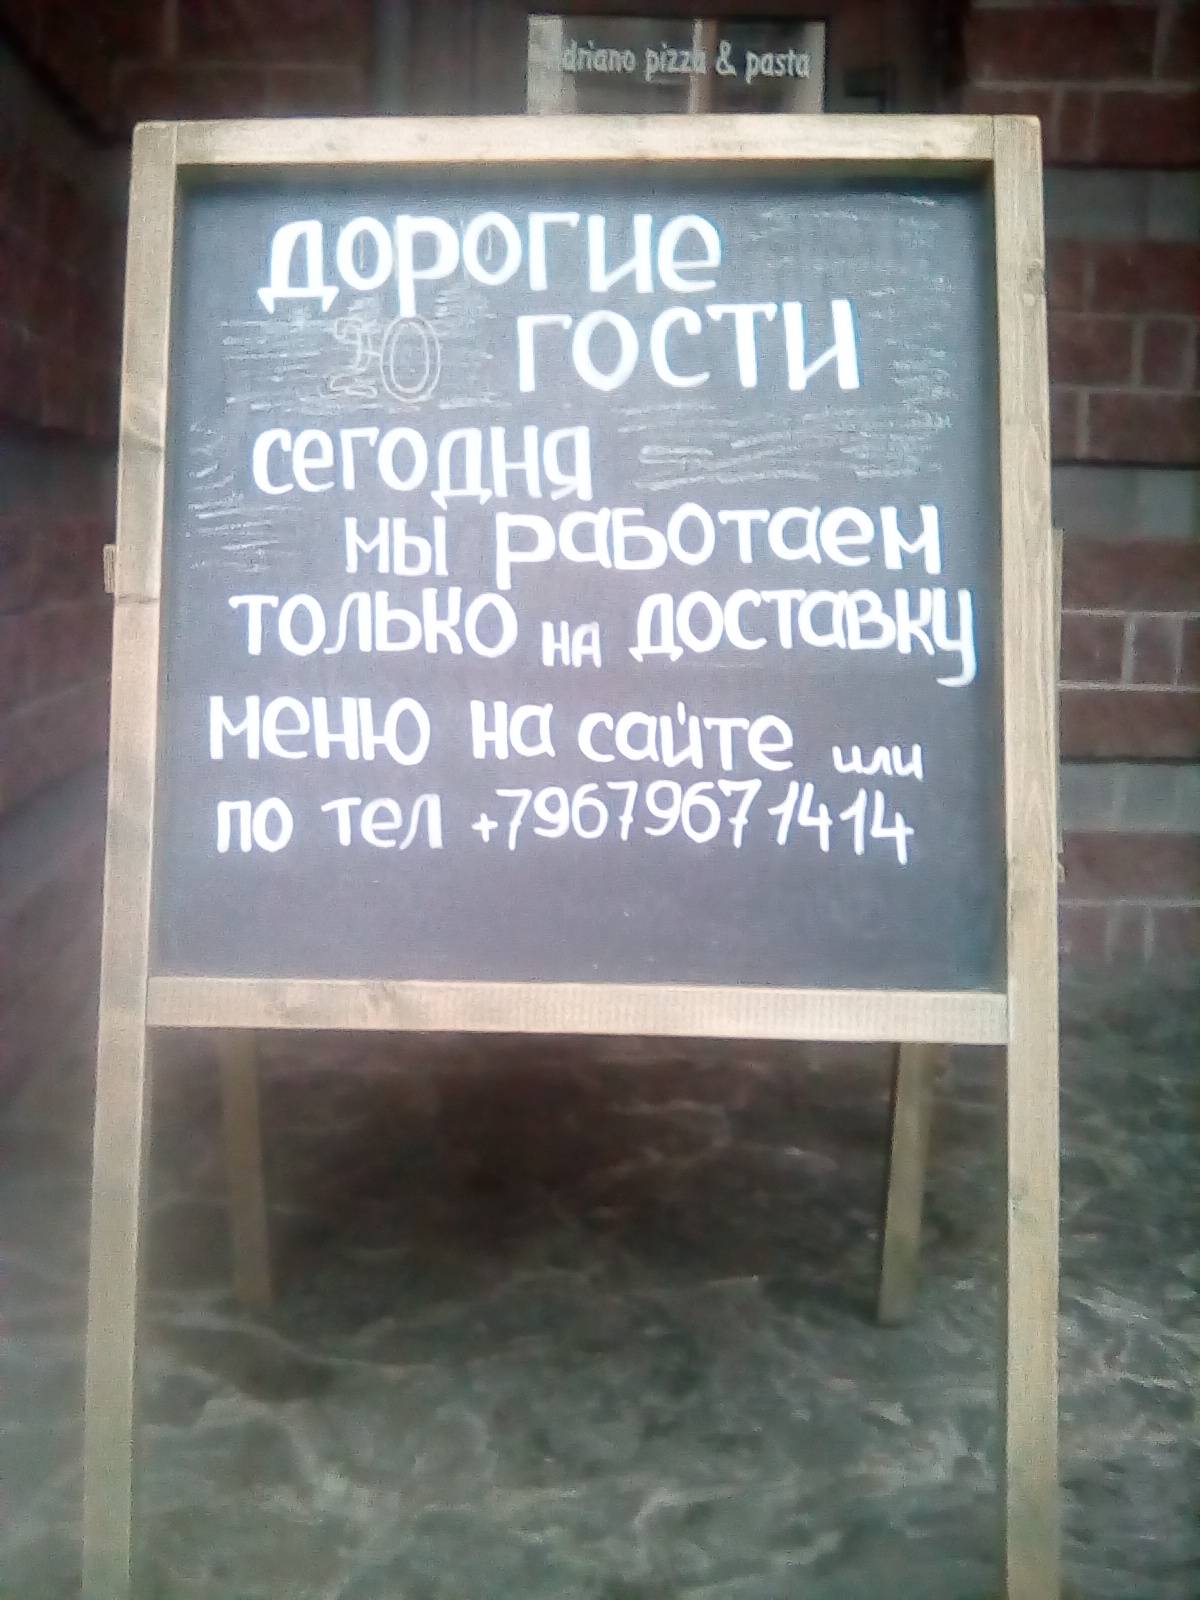 Adriano pizza & pasta
дорогие
гости
сегодня
мы работаем
только на доставку
меню на сайте или
по тел +79679671414